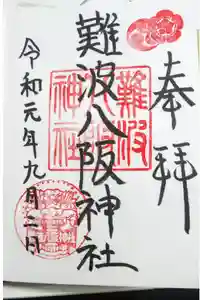 奉拝
難波八阪神社
難波八阪神社
令和元年九月二日